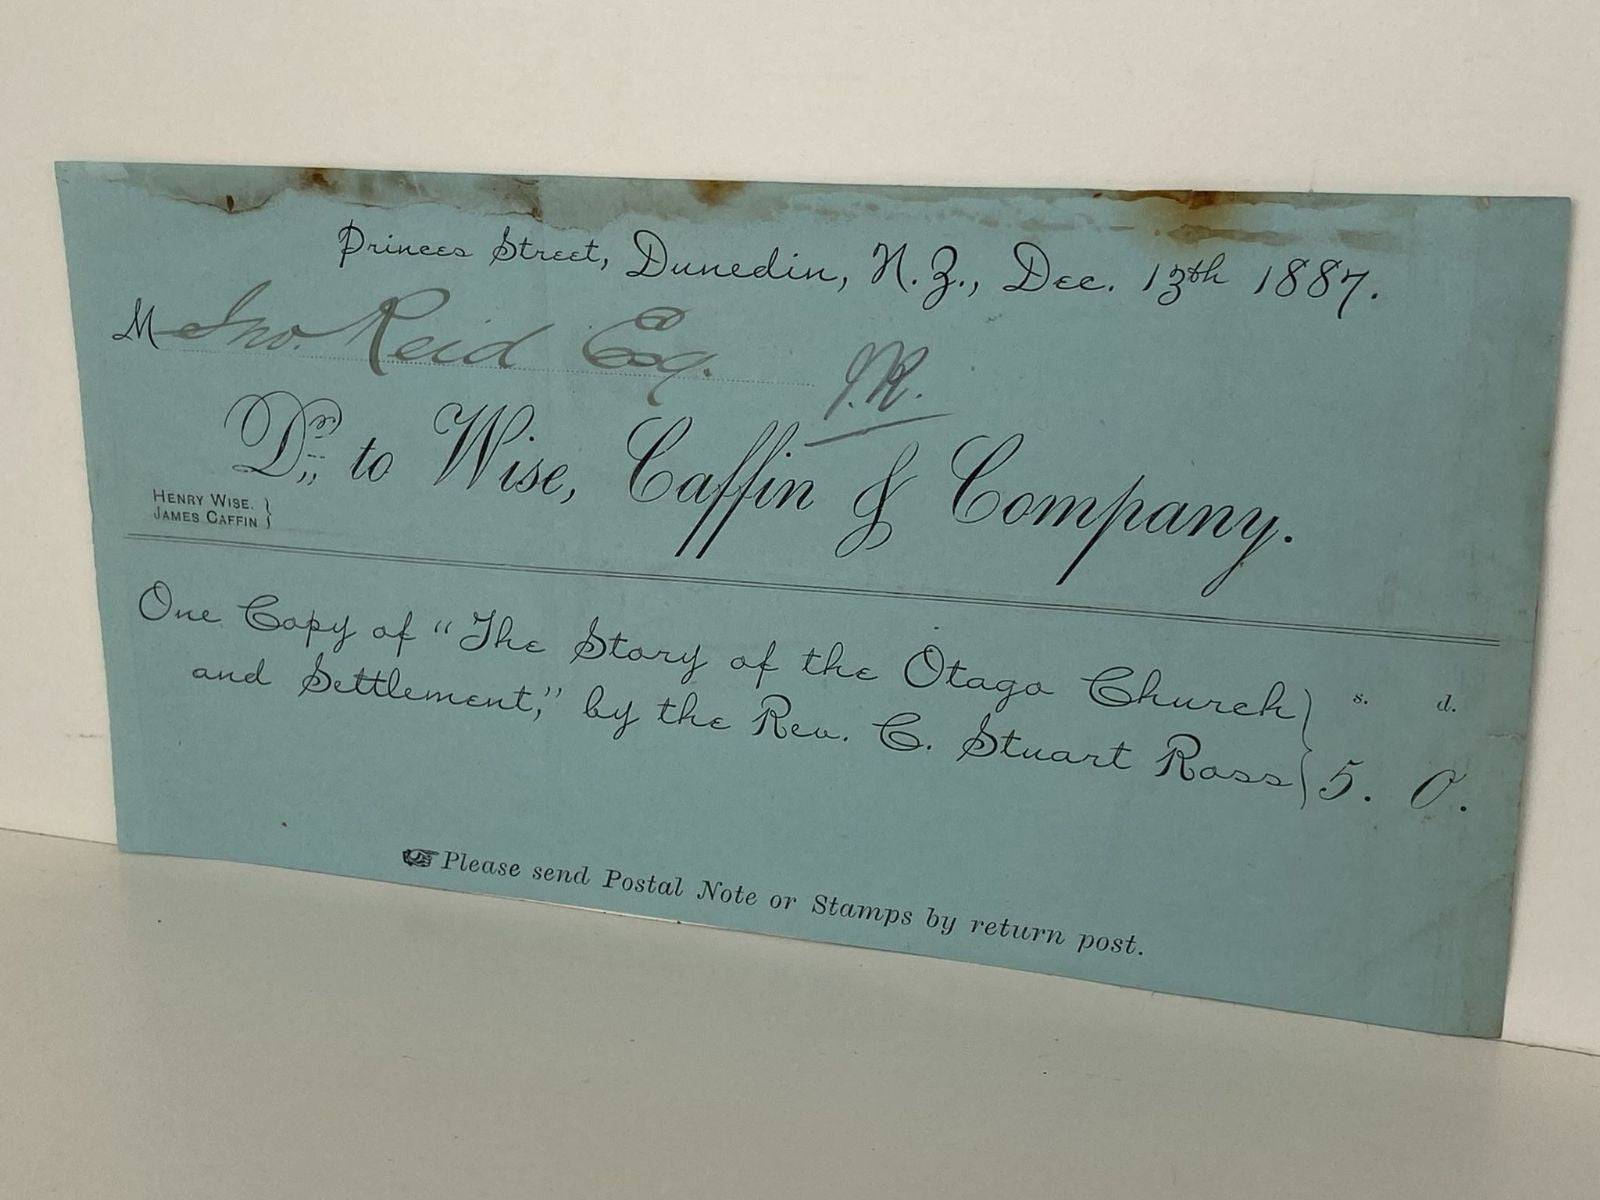 Princes Street, Dunedin, N.Z., Dec. 13th 1887.
M Jno. Reid Esq.
J.R.
Dr. to Wise, Caffin & Company.
HENRY WISE.
JAMES CAFFIN
One Copy of "The Story of the Otago Church
and Settlement," by the Rev. C. Stuart Ross
s. d.
5. 0.
☞ Please send Postal Note or Stamps by return post.